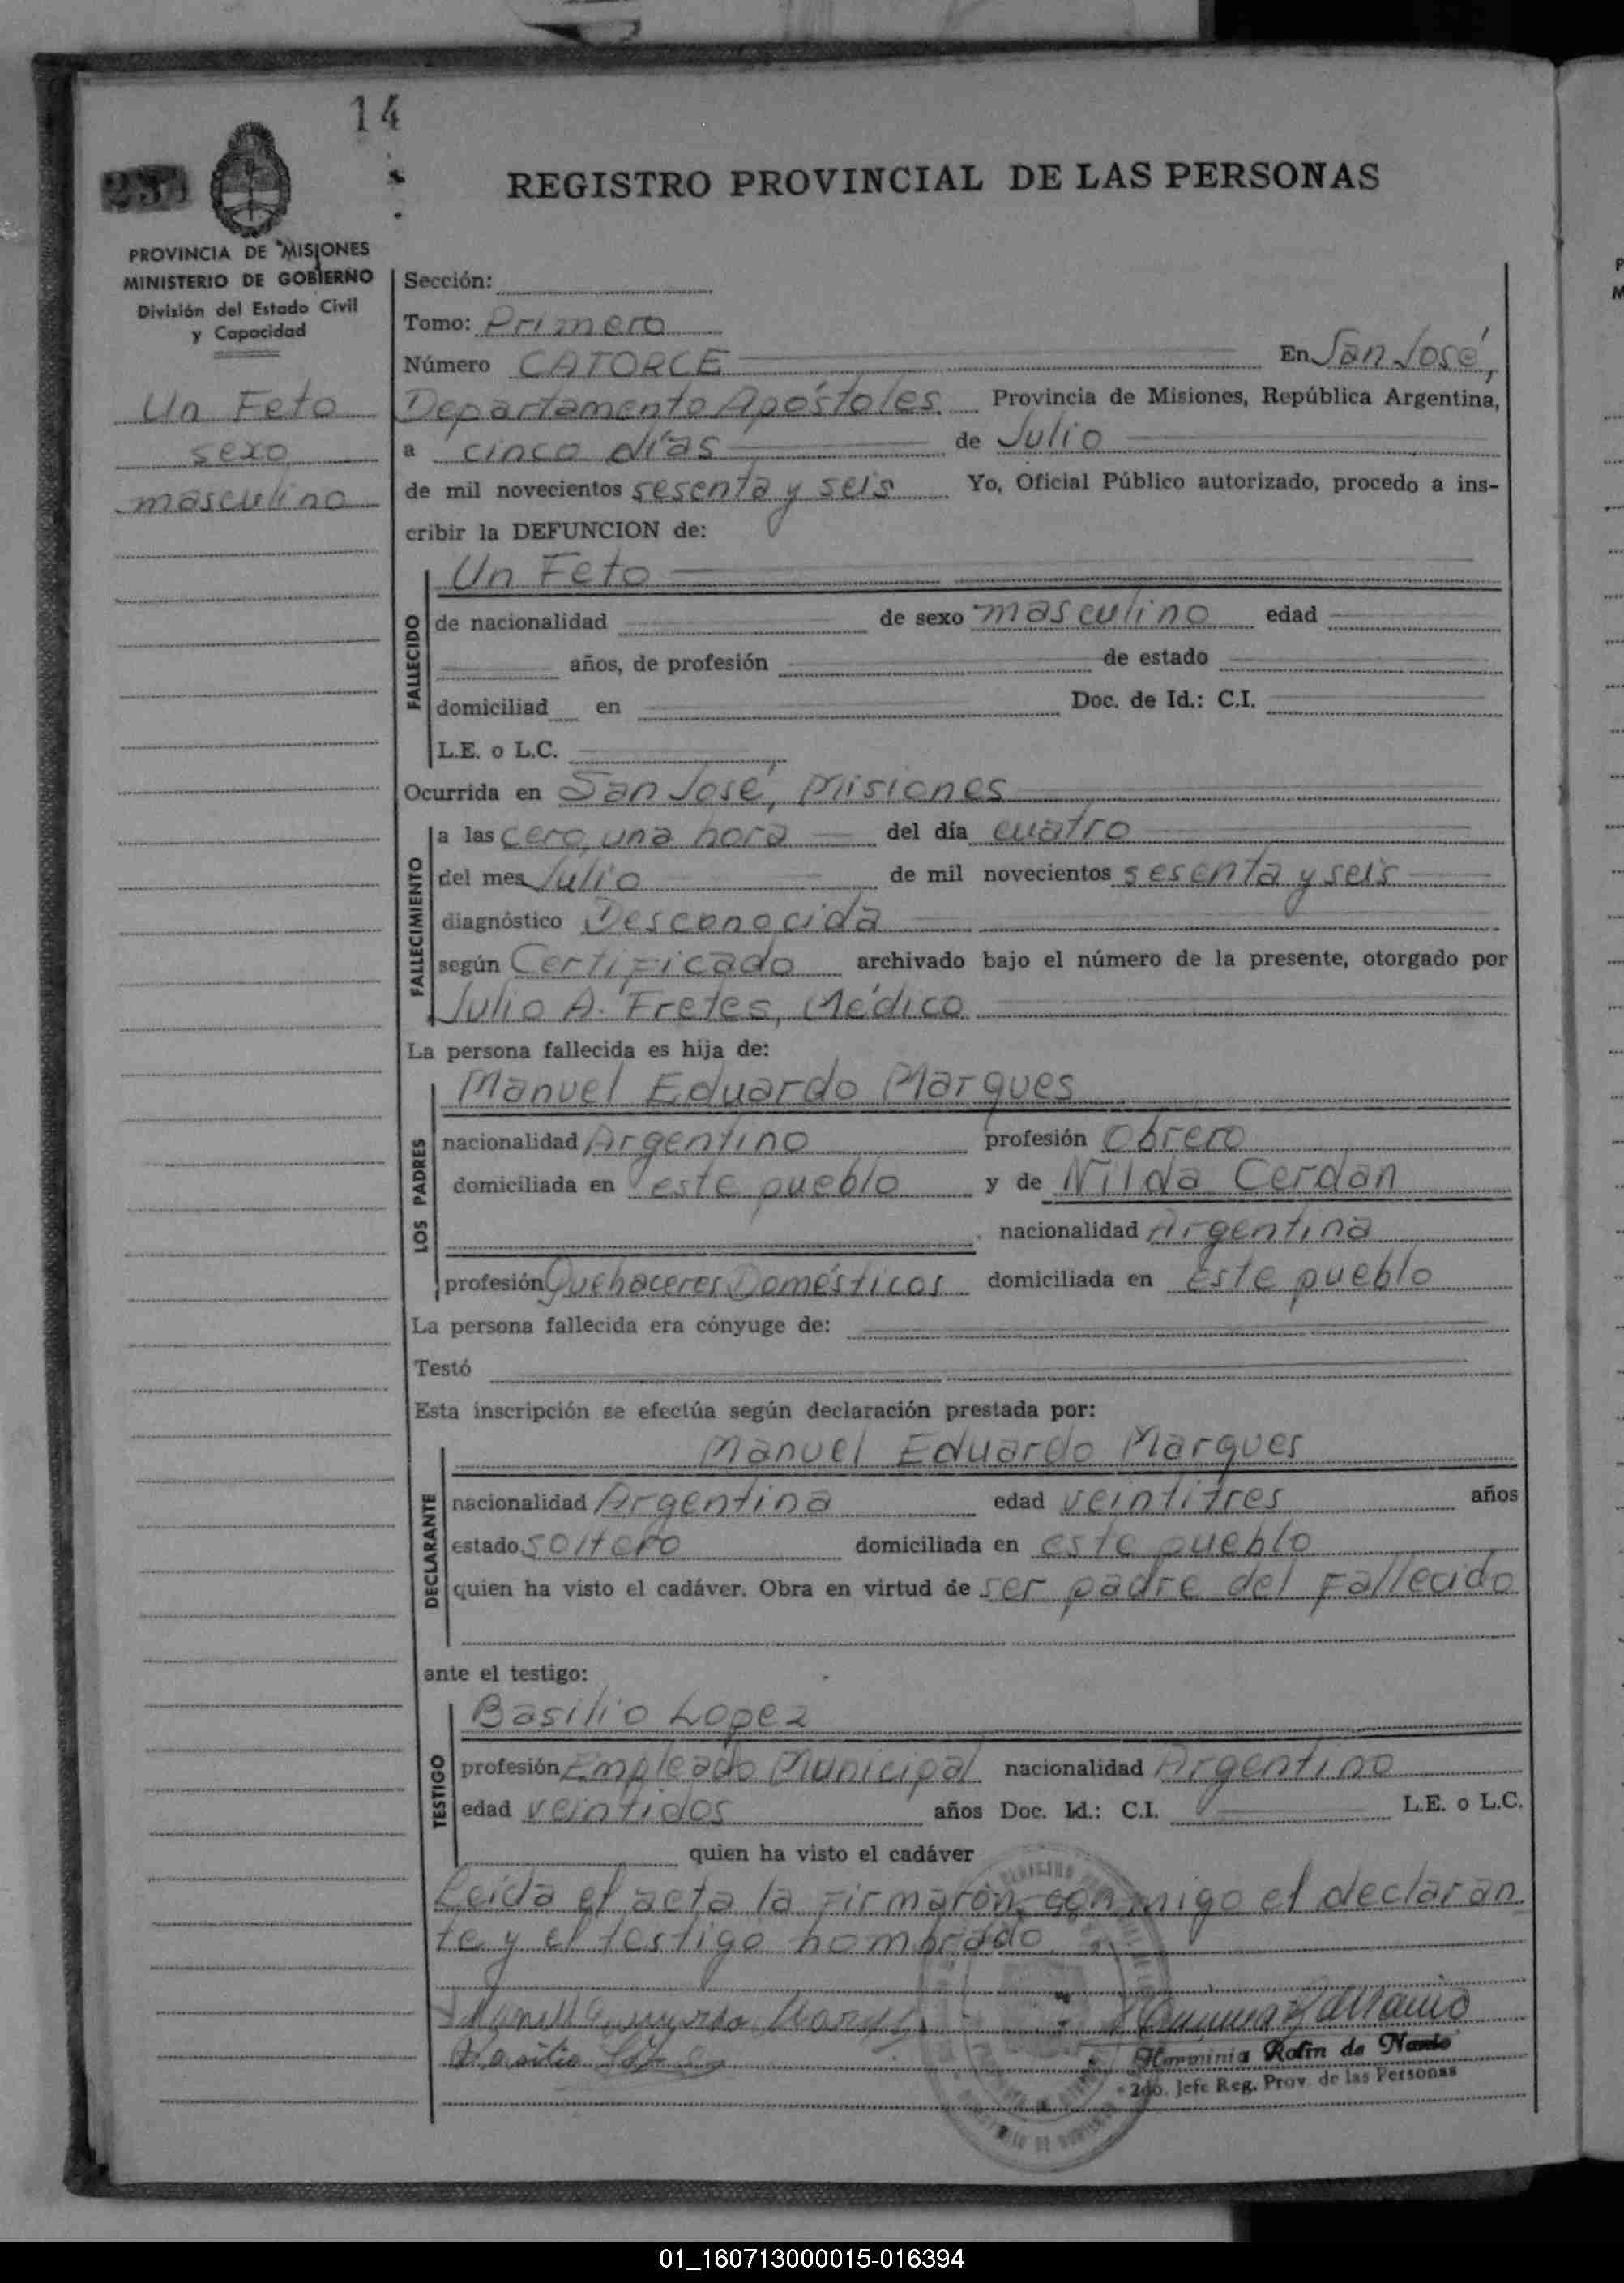 14
REGISTRO PROVINCIAL DE LAS PERSONAS
PROVINCIA DE MISIONES
MINISTERIO DE GOBIERNO
División del Estado Civil
y Capacidad
Un Feto
sexo
masculino
Sección:
Tomo: Primero
Número CATORCE En San José,
Departamento Apóstoles Provincia de Misiones, República Argentina,
a cinco días de Julio
de mil novecientos sesenta y seis Yo, Oficial Público autorizado, procedo a ins-
cribir la DEFUNCION de:
Un Feto
FALLECIDO
de nacionalidad de sexo masculino edad
años, de profesión de estado
domiciliad en Doc. de Id.: C.I.
L.E. o L.C.
Ocurrida en San José, Misiones
FALLECIMIENTO
a las cero, una hora del día cuatro
del mes Julio de mil novecientos sesenta y seis
diagnóstico Desconocida
según Certificado archivado bajo el número de la presente, otorgado por
Julio A. Fretes, Médico
La persona fallecida es hija de:
LOS PADRES
Manuel Eduardo Marques
nacionalidad Argentino profesión Obrero
domiciliada en este pueblo y de Nilda Cerdan
nacionalidad Argentina
profesión Quehaceres Domésticos domiciliada en Este pueblo
La persona fallecida era cónyuge de:
Testó
Esta inscripción se efectúa según declaración prestada por:
DECLARANTE
Manuel Eduardo Marques
nacionalidad Argentina edad veintitres años
estado soltero domiciliada en este pueblo
quien ha visto el cadáver. Obra en virtud de ser padre del Fallecido
ante el testigo:
TESTIGO
Basilio Lopez
profesión Empleado Municipal nacionalidad Argentino
edad veintidos años Doc. Id.: C.I. L.E. o L.C.
quien ha visto el cadáver
Leída el acta la firmaron conmigo el declaran
te y el testigo nombrado
Herminia Rolin de
2do. Jefe Reg. Prov. de las Personas
01_160713000015-016394